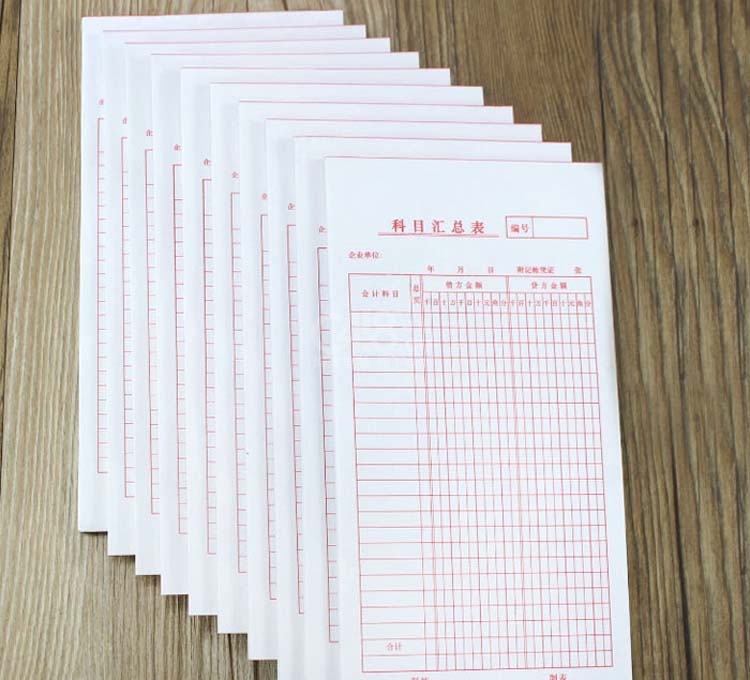 科目汇总表
编号
企业单位:
年 月 日 附记帐凭证 张
会计科目 总页 借方金额 贷方金额
千百十万千百十元角分 千百十万千百十元角分
合计
制表